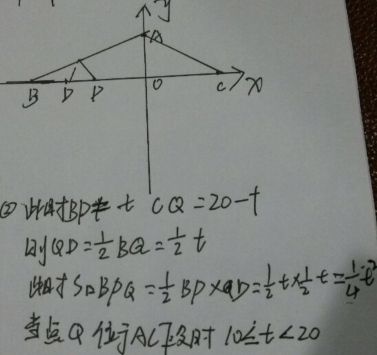 y
A
B D P O C x
② 此时BP= t CQ=20-t
则QD=½BQ=½t
此时S□BPQ=½BP×QD=½t×½t=¼t²
当点Q位于AC段时 10≤t<20